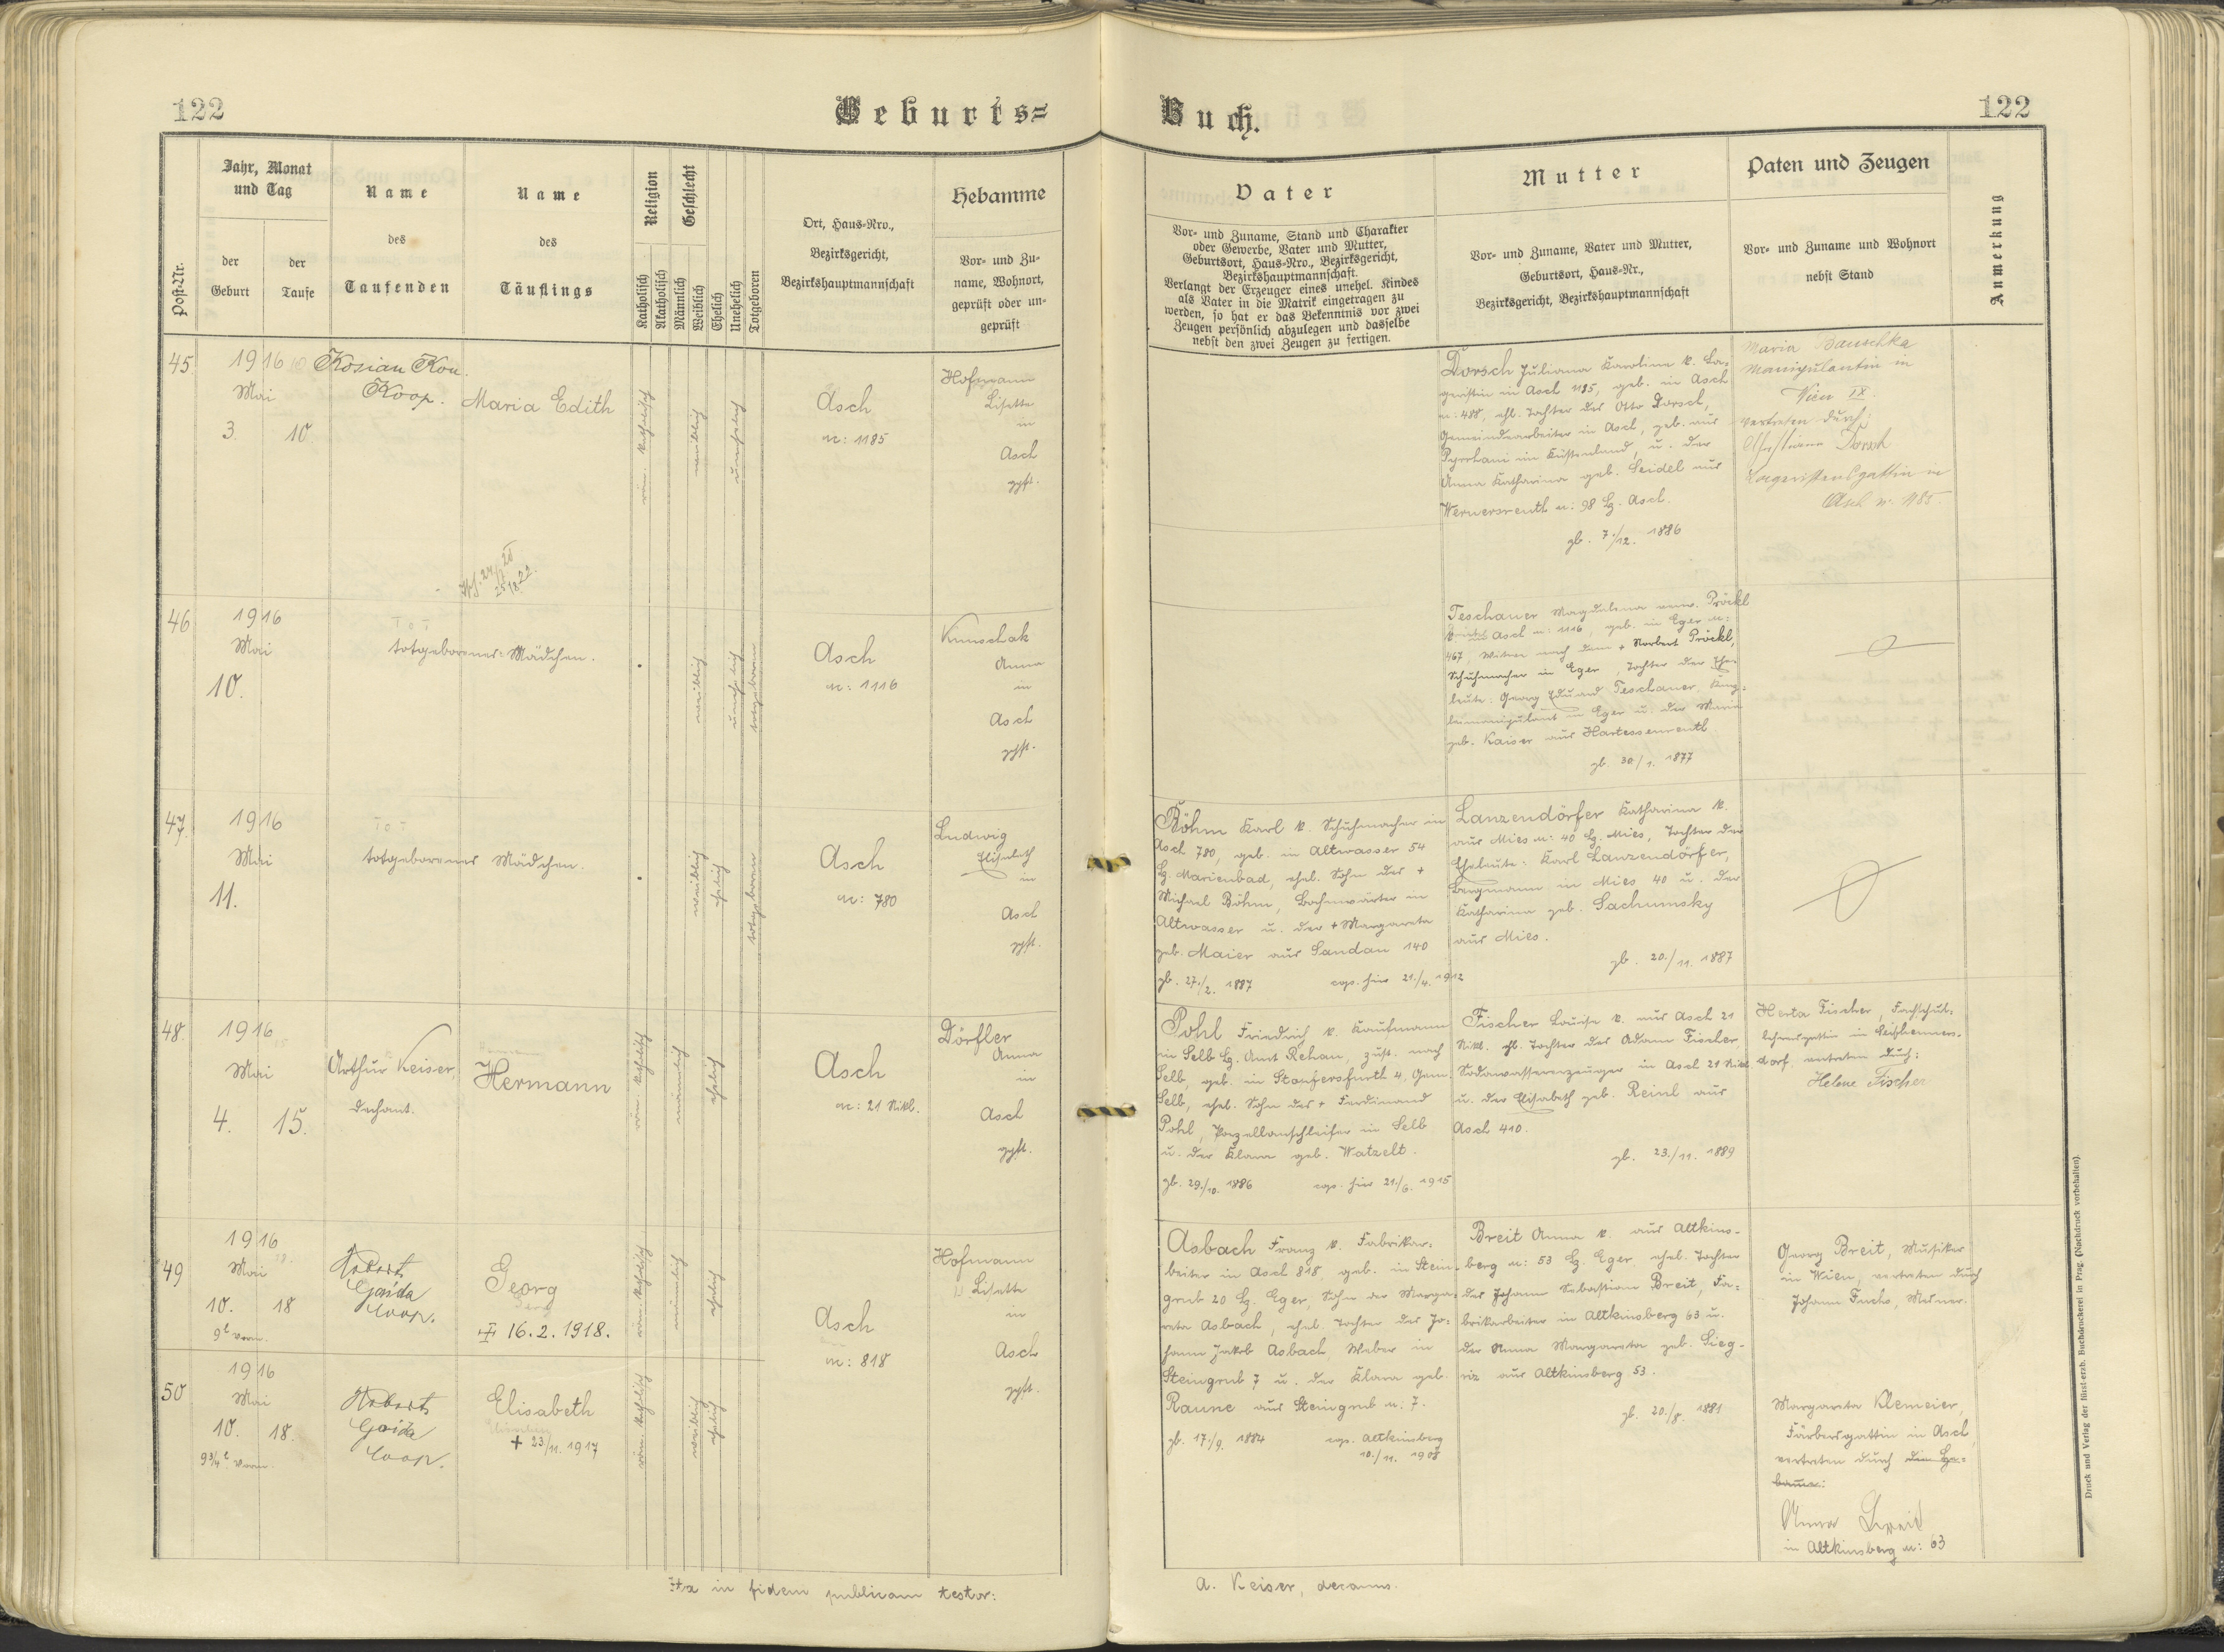 122
Geburts=
Buch.
122
Post-Nr.
Jahr, Monat
und Tag
der
Geburt
der
Taufe
Name
des
Taufenden
Name
des
Täuflings
Religion
Katholisch
Akatholisch
Geschlecht
Männlich
Weiblich
Ehelich
Unehelich
Totgeboren
Ort, Haus-Nro.,
Bezirksgericht,
Bezirkshauptmannschaft
Hebamme
Vor- und Zu-
name, Wohnort,
geprüft oder un-
geprüft
Vater
Vor- und Zuname, Stand und Charakter
oder Gewerbe, Vater und Mutter,
Geburtsort, Haus-Nro., Bezirksgericht,
Bezirkshauptmannschaft.
Verlangt der Erzeuger eines unehel. Kindes
als Vater in die Matrik eingetragen zu
werden, so hat er das Bekenntnis vor zwei
Zeugen persönlich abzulegen und dasselbe
nebst den zwei Zeugen zu fertigen.
Mutter
Vor- und Zuname, Vater und Mutter,
Geburtsort, Haus-Nr.,
Bezirksgericht, Bezirkshauptmannschaft
Paten und Zeugen
Vor- und Zuname und Wohnort
nebst Stand
Anmerkung
45
1916
Mai
3.
10.
Kosian Kon.
Koop.
Maria Edith
röm. katholisch
weiblich
unehelich
Asch
nr: 1185
Hofmann
Lisette
in
Asch
gpft.
Dorsch Juliana Karolina k. La-
geristin in Asch 1185, geb. in Asch
n: 488, ehl. Tochter des Otto Dorsch,
Gemeindearbeiter in Asch, geb. aus
im Küstenland, u. der
Anna Katharina geb. Seidel aus
Wernersreuth n: 98 Bz. Asch.
gb. 7./12. 1886
Maria Bauschka
Manipulantin in
Wien IX.
vertreten durch:
Christiana Dorsch
Lageristensgattin in
Asch n. 1185.
46
1916
Mai
10.
Tot
totgeborenes Mädchen.
weiblich
unehelich
totgeboren
Asch
nr: 1116
Kunschak
Anna
in
Asch
gpft.
Teschauer Magdalena verw. Pröckl
in Asch n: 1116, geb. in Eger n:
467, Witwe nach dem + Norbert Pröckl,
Schuhmacher in Eger, Tochter der Ehe-
leute: Georg Eduard Teschauer,
in Eger u. der Maria
geb. Kaiser aus Hartessenreuth
gb. 30./1. 1877
47.
1916
Mai
11.
Tot
totgeborenes Mädchen.
weiblich
ehelich
totgeboren
Asch
nr: 780
Ludwig
Elisabeth
in
Asch
gpft.
Böhm Karl k. Schuhmacher in
Asch 780, geb. in Altwasser 54
Bz. Marienbad, ehel. Sohn des +
Michael Böhm, Bahnwärter in
Altwasser u. der + Margareta
geb. Maier aus Sandau 140
gb. 27./2. 1887 cop. hier 21./4. 1912
Lanzendörfer Katharina k.
aus Mies n: 40 Bz. Mies, Tochter der
Eheleute: Karl Lanzendörfer,
Bergmann in Mies 40 u. der
Katharina geb. Sachumsky
aus Mies.
gb. 20./11. 1887
48.
1916
Mai
4.
15.
Arthur Keiser,
Dechant.
Hermann
röm. katholisch
männlich
ehelich
Asch
nr: 21 Nikl.
Dörfler
Anna
in
Asch
gpft.
Pohl Friedrich k. Kaufmann
in Selb Bz. Amt Rehau, zust. nach
Selb, geb. in Stopfersfurth 4, Gem.
Selb, ehel. Sohn des + Ferdinand
Pohl, Porzellanschleifer in Selb
u. der Klara geb. Watzelt.
gb. 29./10. 1886 cop. hier 21./6. 1915
Fischer Louise k. aus Asch 21
Nikl. ehl. Tochter des Adam Fischer
Sodawassererzeuger in Asch 21 Nikl.
u. der Elisabeth geb. Reinl aus
Asch 410.
gb. 23./11. 1889
Herta Fischer, Fachschul-
lehrersgattin in
dorf, vertreten durch:
Helene Fischer
49
1916
Mai
10.
18
9h vorm.
Robert
Gaida
Coop.
Georg
+ 16.2.1918.
röm. katholisch
männlich
ehelich
Asch
nr: 818
Hofmann
Lisette
in
Asch
gpft.
Asbach Franz k. Fabrikar-
beiter in Asch 818, geb. in Stein-
grub 20 Bz. Eger, Sohn der Marga-
reta Asbach, ehel. Tochter des Jo-
hann Jakob Asbach, Weber in
Steingrub 7 u. der Klara geb.
Raune aus Steingrub n: 7.
gb. 17./9. 1884 cop. Altkinsberg
10./11. 1908
Breit Anna k. aus Altkins-
berg n: 53 Bz. Eger, ehel. Tochter
des Johann Sebastian Breit, Fa-
brikarbeiter in Altkinsberg 63 u.
der Anna Margareta geb. Sieg-
riz aus Altkinsberg 53.
gb. 20./8. 1881
Georg Breit, Musiker
in Wien, vertreten durch
Johann Fuchs, Mesner.
50
1916
Mai
10.
18.
9 3/4 h vorm.
Robert
Gaida
Coop.
Elisabeth
+ 23/11. 1917
röm. katholisch
weiblich
ehelich
Margareta Klemeier,
Färbersgattin in Asch,
vertreten durch die He-
bamme:
Anna
in Altkinsberg n: 63
Ita in fidem publicam testor:
A. Keiser, decanus.
Druck und Verlag der fürst-erzb. Buchdruckerei in Prag. (Nachdruck vorbehalten)